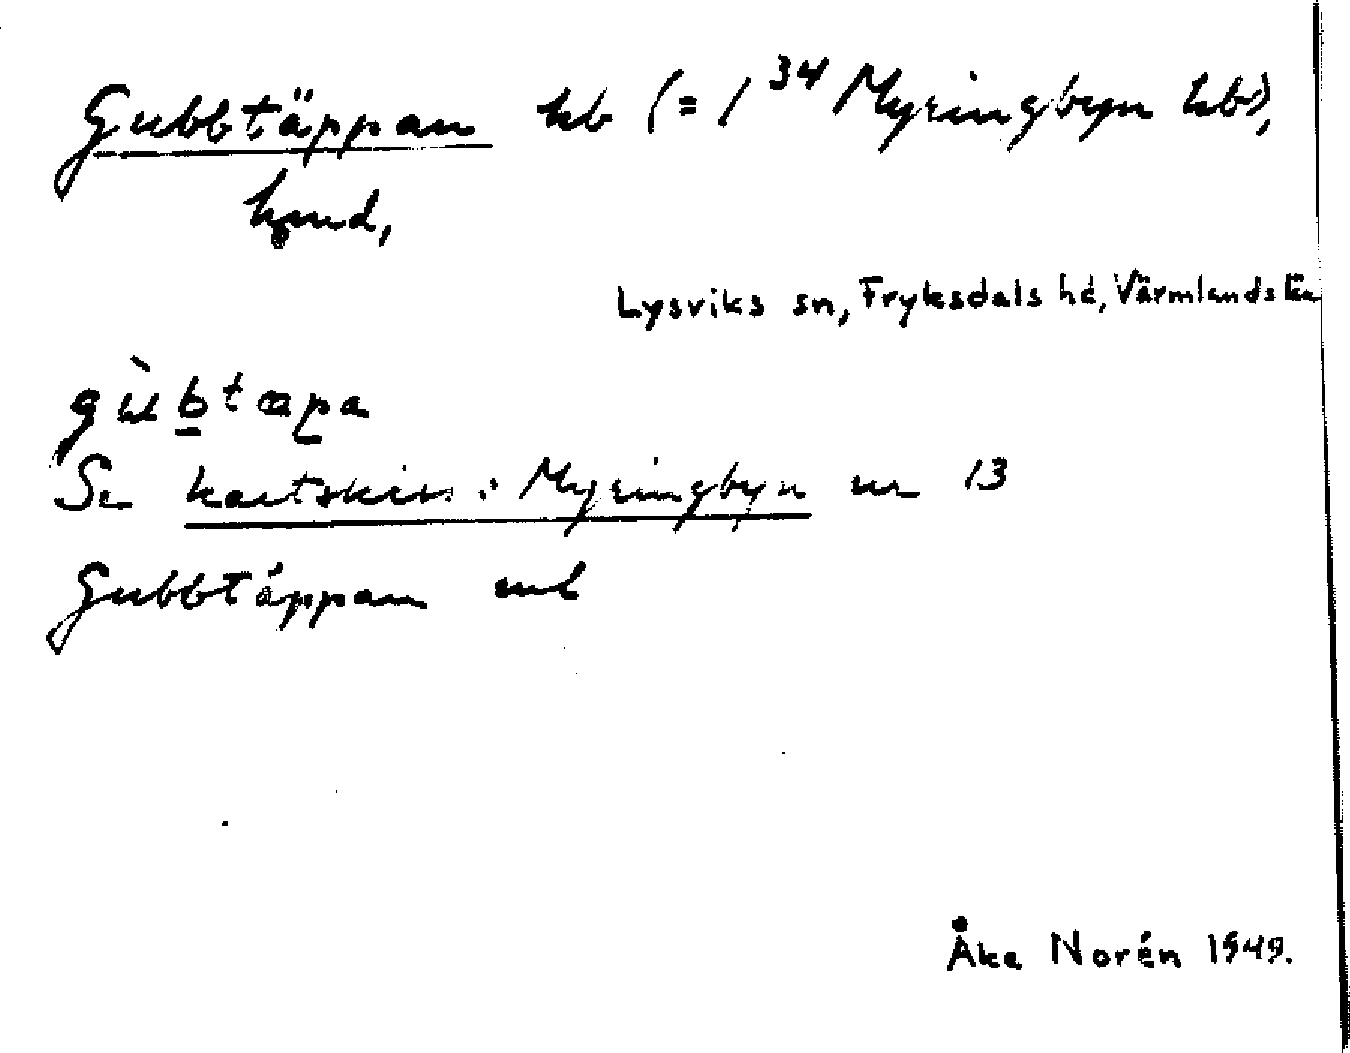 Gubbtäppan hb (= 1 34 Myringbyn hbs),
hmd,
Lysviks sn, Fryksdals hd, Värmlands län
gùbtæpa
Se kartskiss: Myringbyn nr 13
Gubbtäppan
Åke Norén 1949.